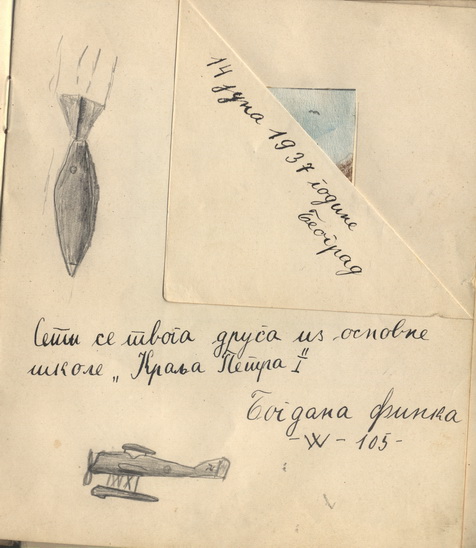 14 јуна 1937 године
Београд
Сети се твога друга из основне
школе „Краља Петра I"
Богдана Финка
-W-105-